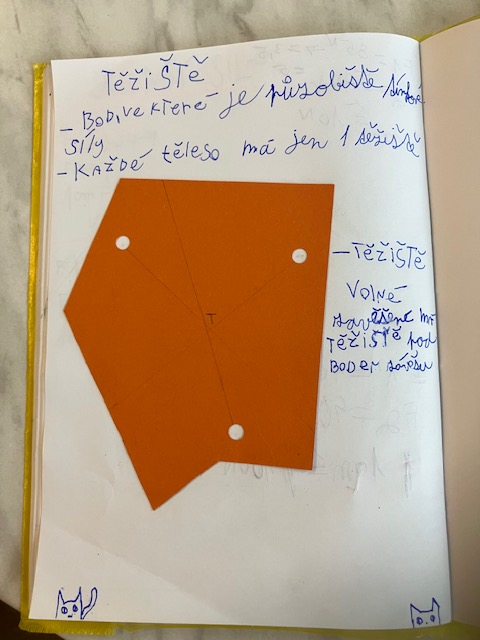 TěžiŠTě
- BOD, ve které je působiště tíhové
síly
- Každé těleso má jen 1 těžiště
T
- Těžiště
Volně
zavěšené má
Těžiště pod
Boder závěsu